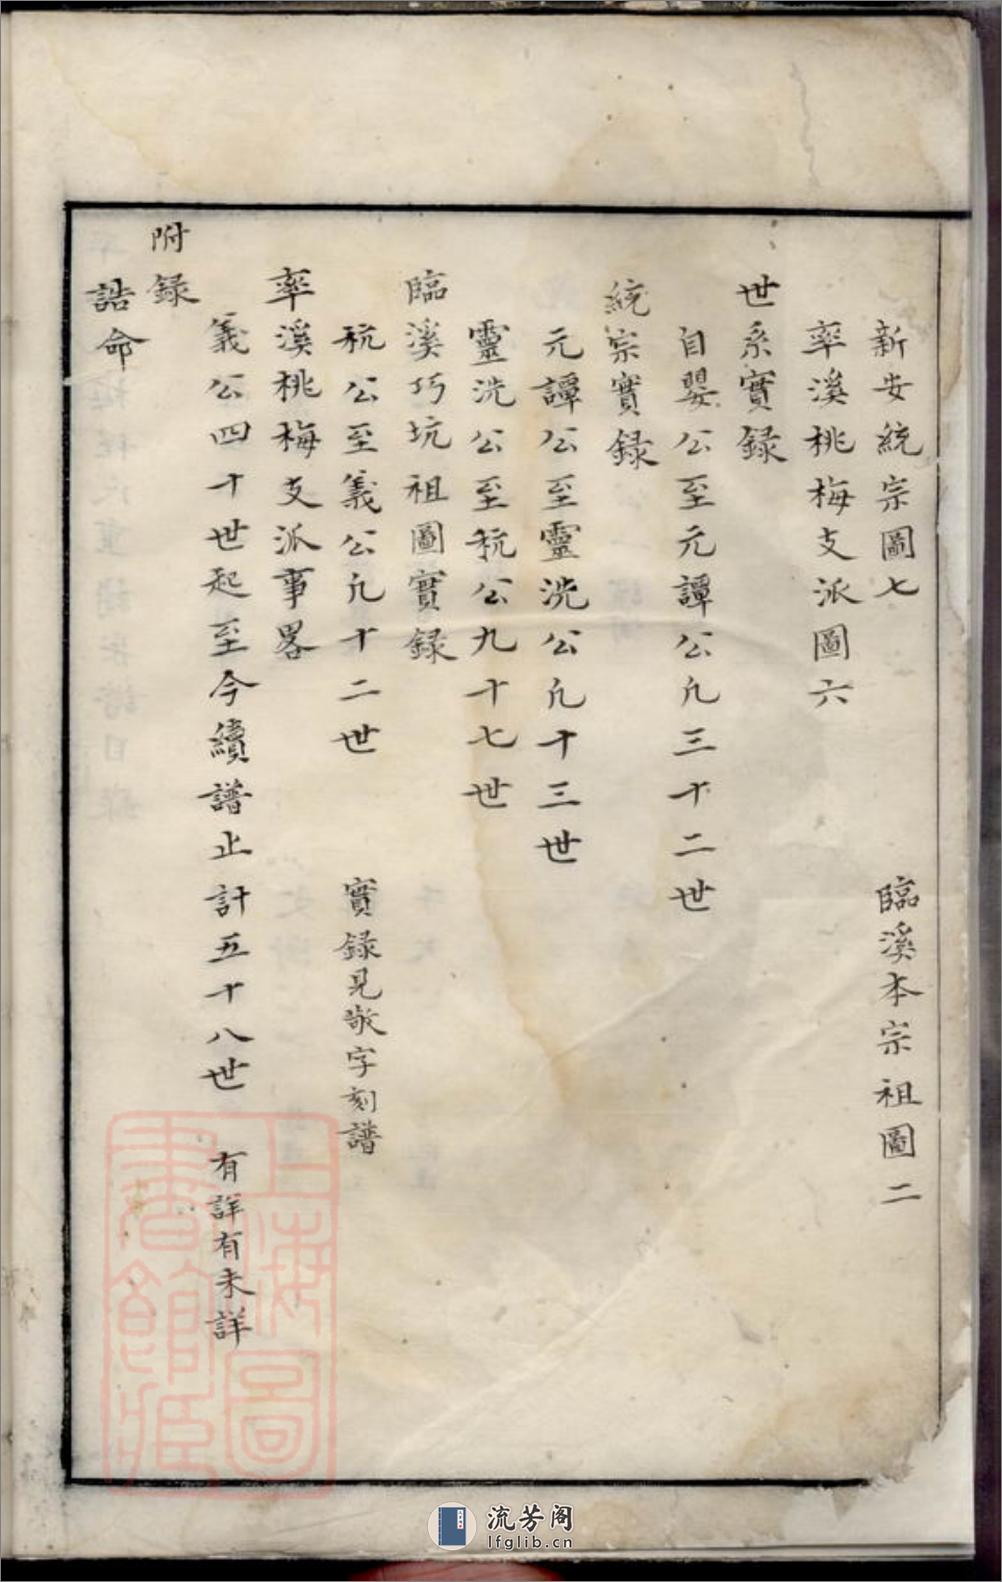 新安統宗圖七　臨溪本宗祖圖二
率溪桃梅支派圖六
世系實録
自嬰公至元譚公凢三十二世
統宗實録
元譚公至靈洗公凢十三世
靈洗公至秔公九十七世
臨溪巧坑祖圖實録
秔公至義公凢十二世　實録見敬字刻譜
率溪桃梅支派事畧
義公四十世起至今續譜止計五十八世　有詳有未詳
附録
誥命
上海圖書館藏
流芳阁
lfglib.cn